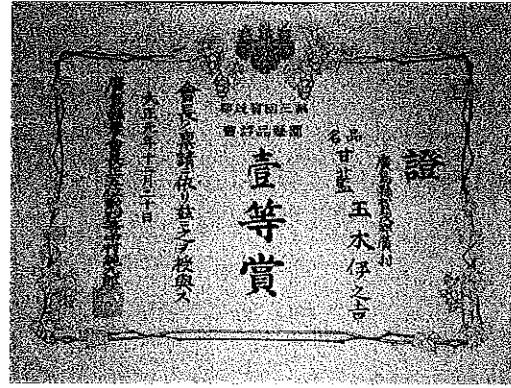 證
廣島縣賀茂郡廣村
品名 甘藍 玉木伊之吉
第三回賀茂郡
園藝品評會
壹等賞
會長ノ稟請ニ依リ茲ニ之ヲ授與ス
大正元年十二月二十日